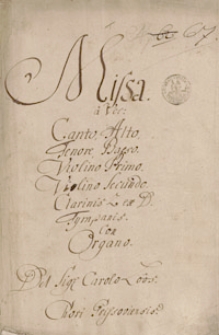 67.
Missa.
à Voc:
Canto, Alto,
Tenore, Basso,
Violino Primo,
Violino Secundo,
Clarinis 2 ex D.
Tympanis,
Con
Organo.
Del Sigr Carolo
Chori